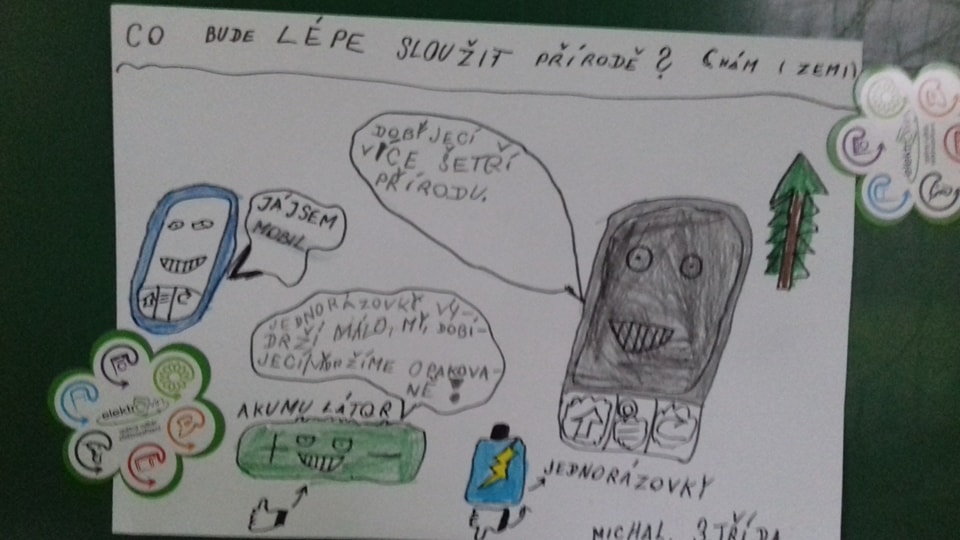 CO BUDE LÉPE SLOUŽIT PŘÍRODĚ? (NÁM I ZEMI)
DOBÝJECÍ
VÍCE ŠETŘÍ
PŘÍRODU.
JÁ JSEM
MOBIL
JEDNORÁZOVKY VY-
DRŽÍ MÁLO, MY, DOBÍ-
JECÍ VYDRŽÍME OPAKOVA-
NĚ!
AKUMULÁTOR
+ -
JEDNORÁZOVKY
MICHAL, 3 TŘÍDA
elektrowin